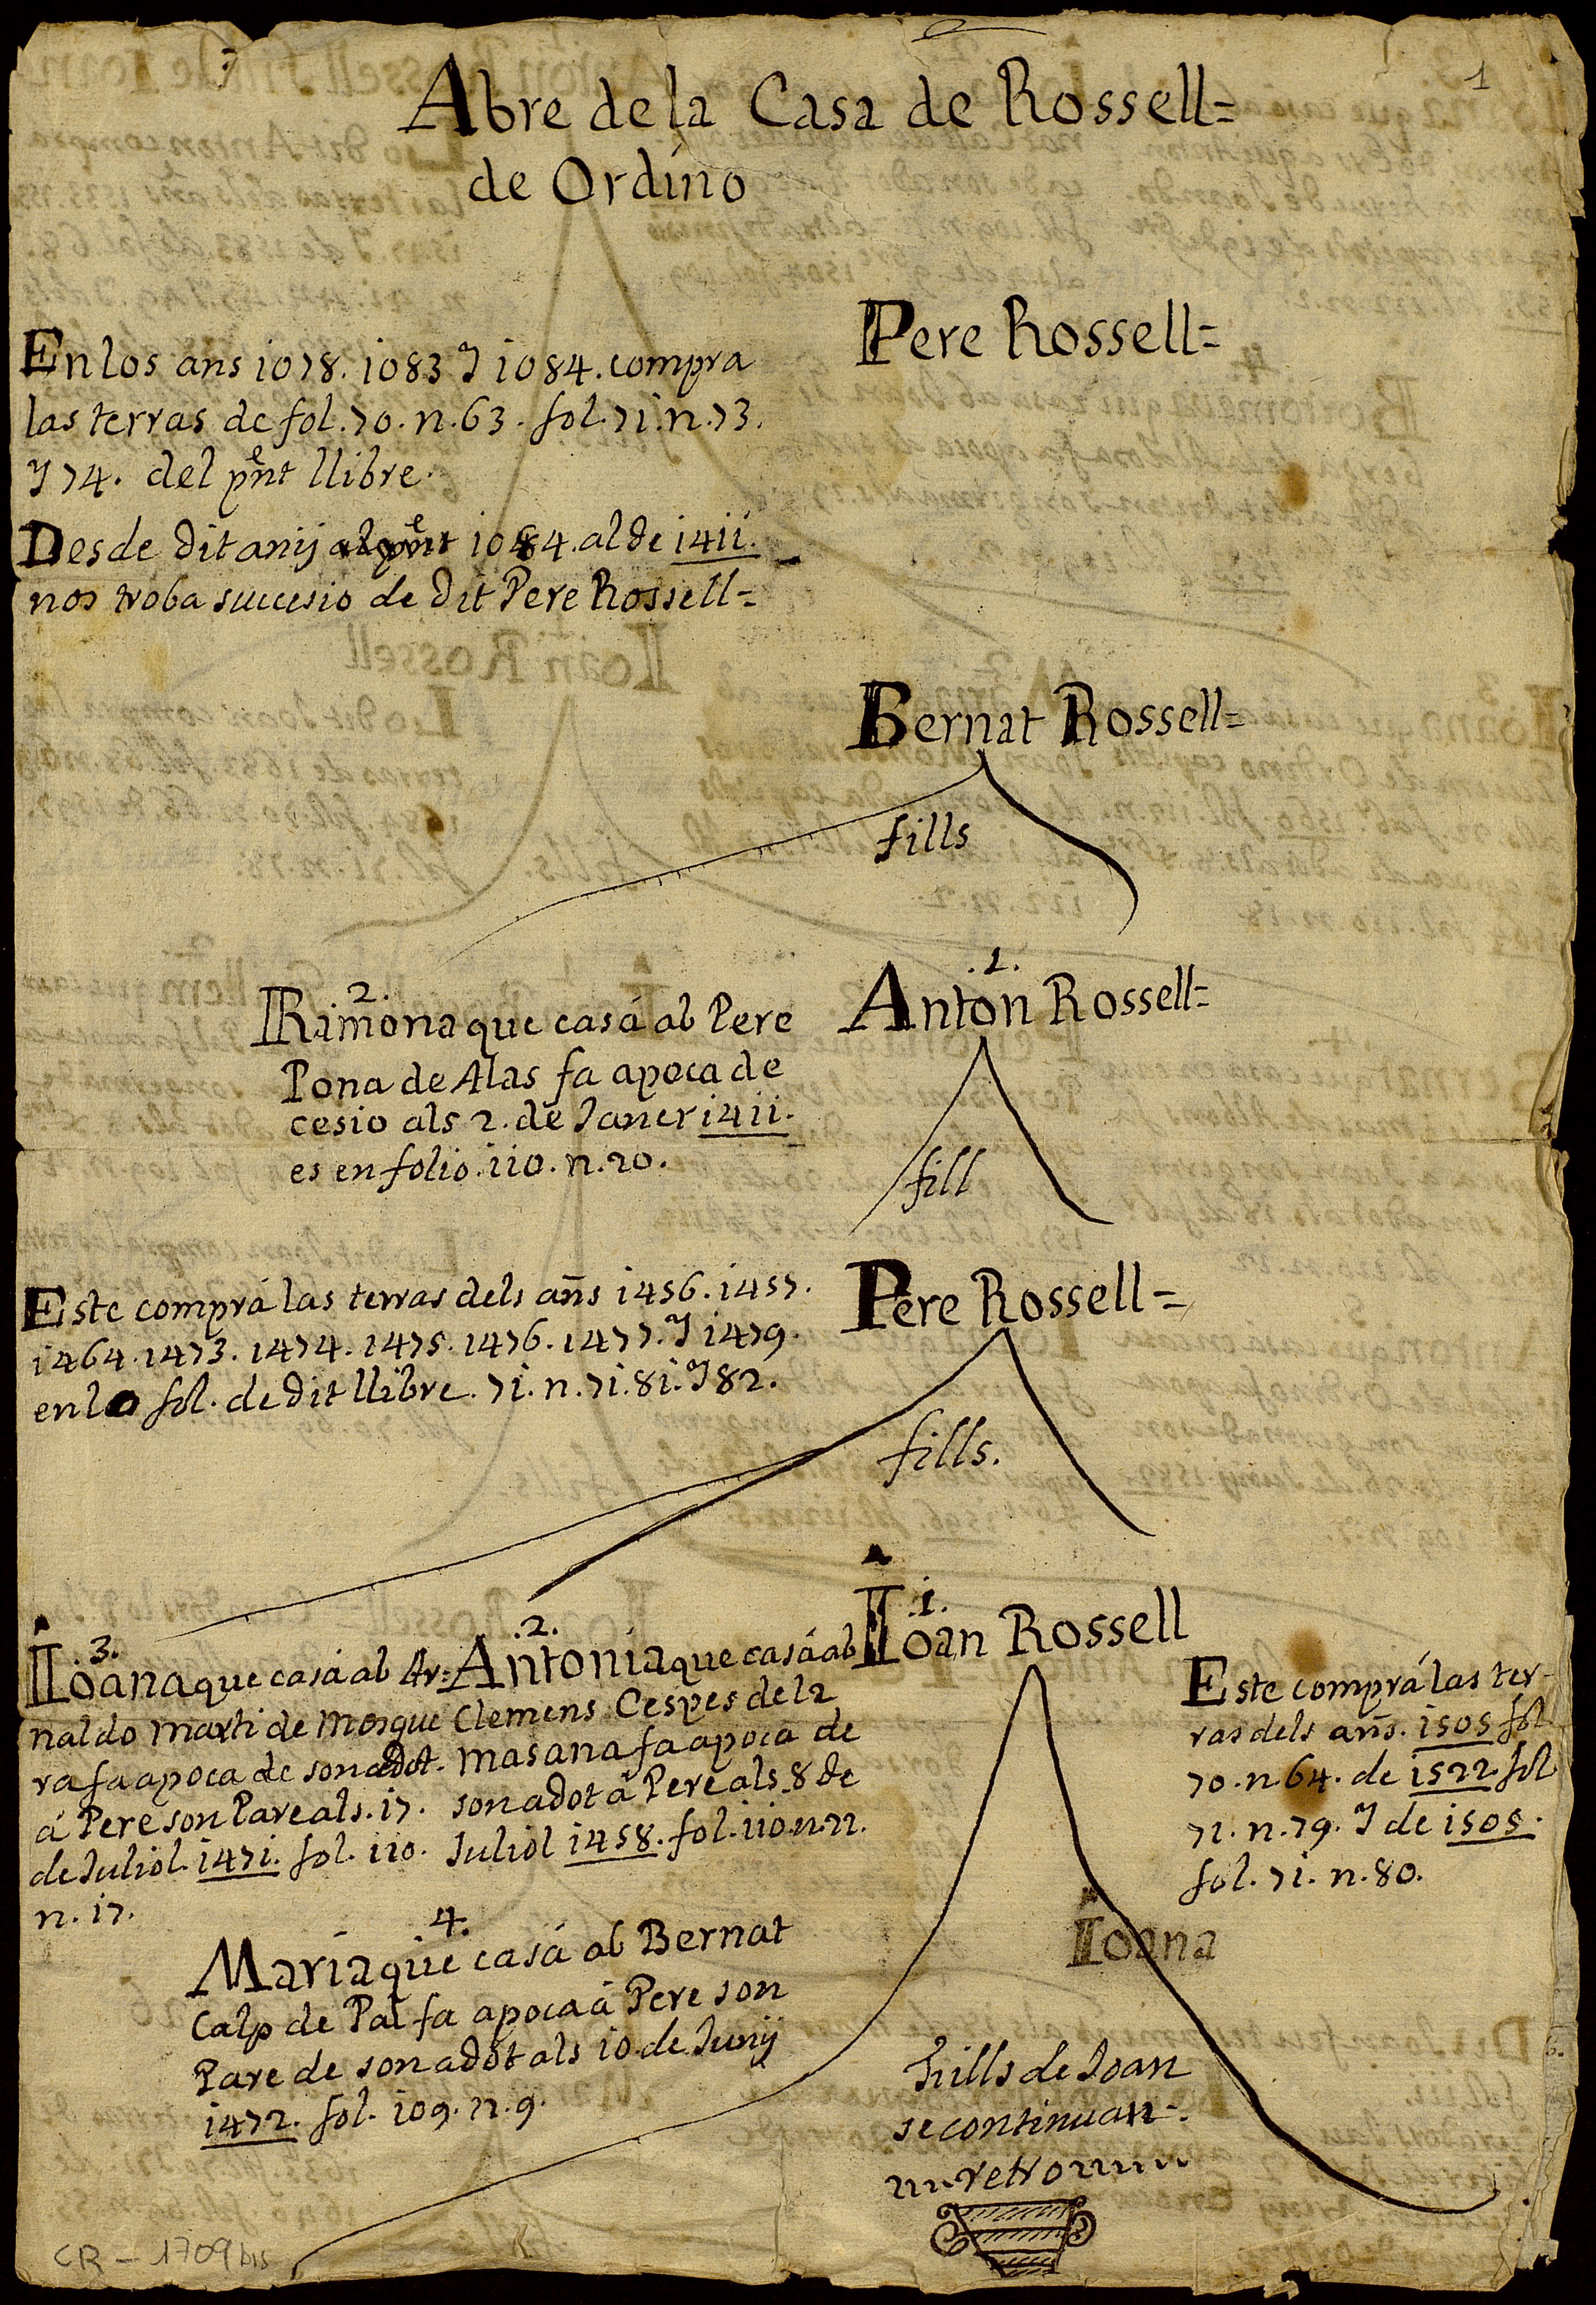 1
Abre de la Casa de Rossell=
de Ordino
Pere Rossell=
En los ans 1078. 1083 Y 1084. compra
las terras de fol. 70. n. 63. fol. 71. n. 73.
Y 74. del pnt llibre.
Desde dit anij 1084. al de 1411.
nos troba succesio de dit Pere Rossell=
Bernat Rossell=
fills
.1.
Anton Rossell=
2.
Rimona que casá ab Pere
Pona de Alas fa apoca de
cesio als 2. de Janer 1411.
es en folio. 110. n. 20.
fill
Pere Rossell=
Este comprá las terras dels añs 1456. 1457.
1464. 1473. 1474. 1475. 1476. 1477. Y 1479.
en lo fol. de dit llibre. 71. n. 71. 81. Y 82.
fills.
.1.
Ioan Rossell
Este comprá las ter-
ras dels añs. 1505 fol
70. n 64. de 1522. fol
71. n. 79. Y de 1505.
fol. 71. n. 80.
.2.
Antonia que casá ab
Clemens Cespes de la
Masana fa apoca de
son adot á Pere als 8 de
Juliol 1458. fol. 110. n. 22.
.3.
Ioana que casá ab Ar=
naldo Marti de Mosque
ra fa apoca de son adot.
á Pere son Pare als. 17.
de Juliol. 1471. fol. 110.
n. 17.
4.
Maria que casá ab Bernat
Calp de Pal fa apoca á Pere son
Pare de son adot als 10. de Junij
1472. fol. 109. n. 9.
Ioana
fills de Joan
se continuan
retro
CR - 1709 bis